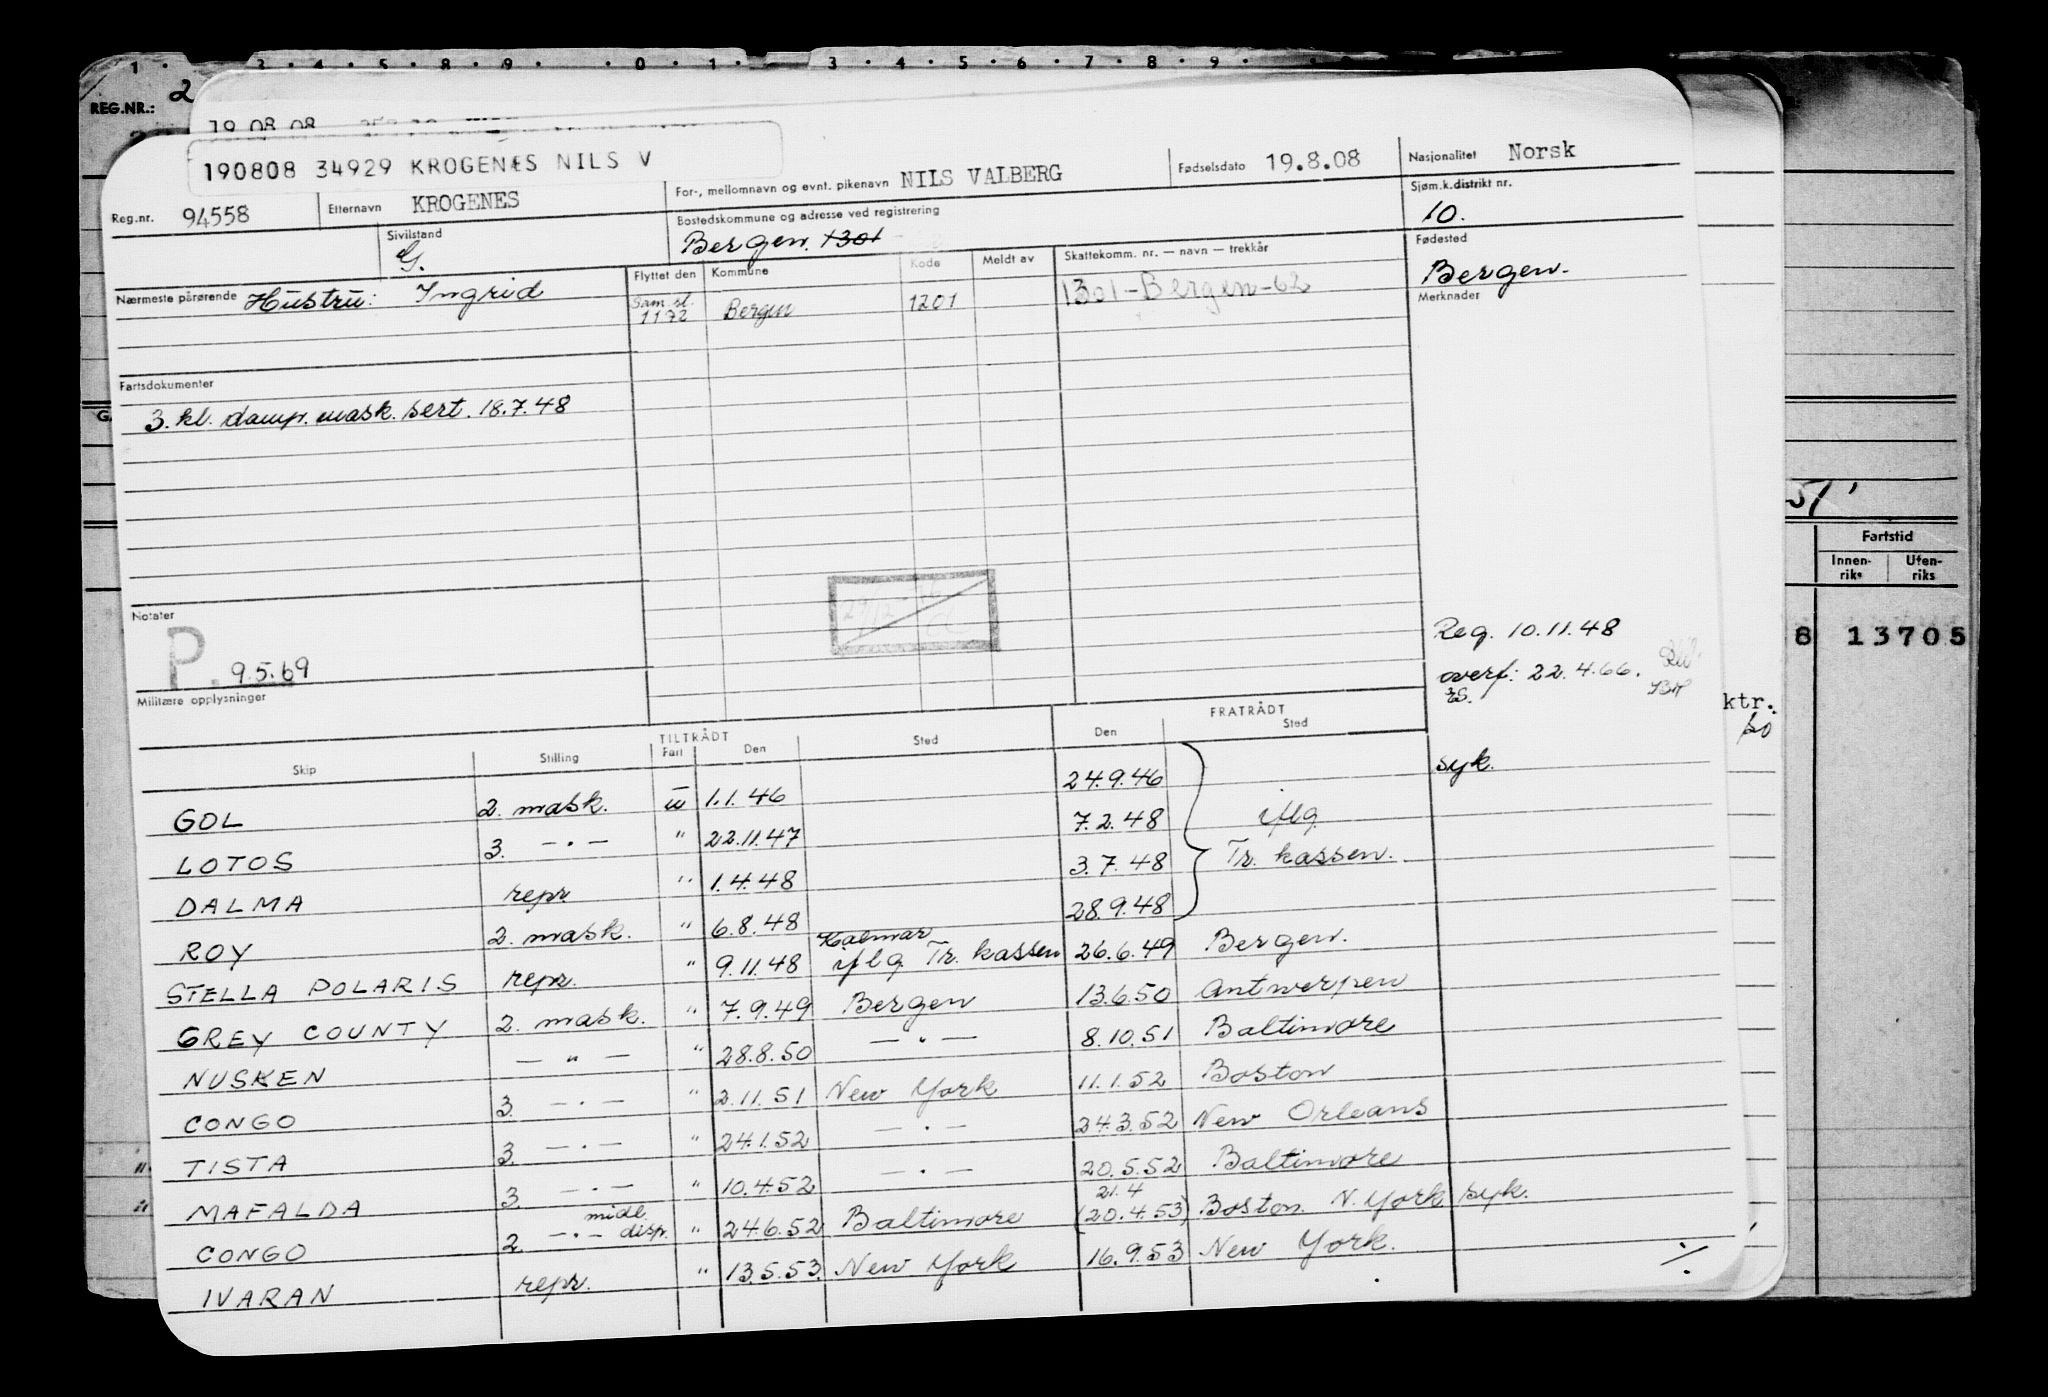 1 · 3 · 4 · 5 · 8 · 9 · 0 · 1 · 3 · 4 · 5 · 6 · 7 · 8 · 9
REG.NR.: 2
19 08 08
190808 34929 KROGENÆS NILS V
Reg.nr. 94558 Etternavn KROGENES For-, mellomnavn og evnt. pikenavn NILS VALBERG Fødselsdato 19.8.08 Nasjonalitet Norsk
Sivilstand G. Bostedskommune og adresse ved registrering Bergen. 1301 Sjøm.k.distrikt nr. 10.
Nærmeste pårørende Hustru: Ingrid
Flyttet den Kommune Kode Meldt av Skattekomm. nr. — navn — trekkår
Fødested Bergen.
Sam.sl. 1172 Bergen 1201 1301-Bergen-62
Merknader
Fartsdokumenter
3. kl. damp. mask. sert. 18.7.48
51'
Fartstid
Innen-riks Uten-riks
8 13705
Notater
P. 9.5.69
29/12-76
Reg. 10.11.48
overf: 22.4.66.
ES.
ktr.
Militære opplysninger
TILTRÅDT FRATRÅDT
Skip Stilling Fart Den Sted Den Sted
GOL 2. mask. u 1.1.46 24.9.46 syk.
LOTOS 3. — " — " 22.11.47 7.2.48 iflg
DALMA repr " 1.4.48 3.7.48 Tr. kassen.
ROY 2. mask. " 6.8.48 28.9.48
STELLA POLARIS repr. " 9.11.48 Kalmar iflg Tr. kassen 26.6.49 Bergen.
GREY COUNTY 2. mask. " 7.9.49 Bergen 13.6.50 Antwerpen
NUSKEN — " — " 28.8.50 — " — 8.10.51 Baltimore
CONGO 3. — " — " 2.11.51 New York 11.1.52 Boston
TISTA 3. — " — " 24.1.52 — " — 24.3.52 New Orleans
MAFALDA 3. — " — " 10.4.52 — " — 20.5.52 Baltimore
CONGO 2. — " — midl. disp. " 24.6.52 Baltimore 21.4 (20.4.53) Boston N. York syk.
IVARAN repr. " 13.5.53. New York 16.9.53 New York.
./.